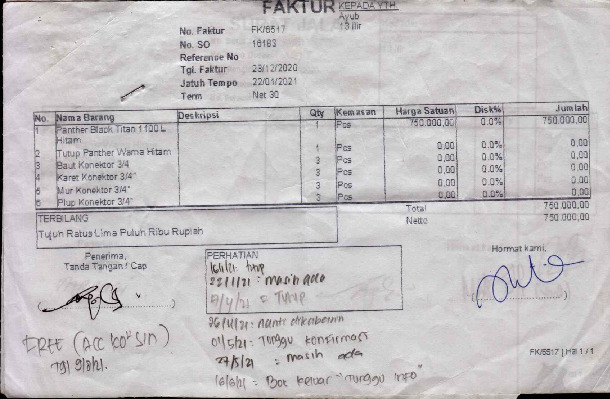 FAKTUR KEPADA YTH
Ayub
13 Ilir
No. Faktur FK/6517
No. SO 16183
Reference No
Tgl. Faktur 23/12/2020
Jatuh Tempo 22/01/2021
Term Net 30
No. Nama Barang Deskripsi Qty Kemasan Harga Satuan Disk% Jumlah
1 Panther Black Titan 1100 L Hitam 1 Pcs 750.000,00 0.0% 750.000,00
2 Tutup Panther Warna Hitam 1 Pcs 0,00 0.0% 0,00
3 Baut Konektor 3/4 3 Pcs 0,00 0.0% 0,00
4 Karet Konektor 3/4" 3 Pcs 0,00 0.0% 0,00
5 Mur Konektor 3/4" 3 Pcs 0,00 0.0% 0,00
6 Plup Konektor 3/4" 3 Pcs 0,00 0.0% 0,00
Total 750.000,00
Netto 750.000,00
TERBILANG
Tujuh Ratus Lima Puluh Ribu Rupiah
Penerima,
Tanda Tangan / Cap
PERHATIAN
Hormat kami,
tutup
: masih ada
5/4/21 = Tutup
26/4/21: nanti dikabarin
01/5/21: Tunggu konfirmasi
27/5/21 : masih ada
16/6/21 = Bos keluar "Tunggu info"
FREE (ACC KO" SIN)
Tgl 9/8/21.
FK/6517 | Hal 1 / 1